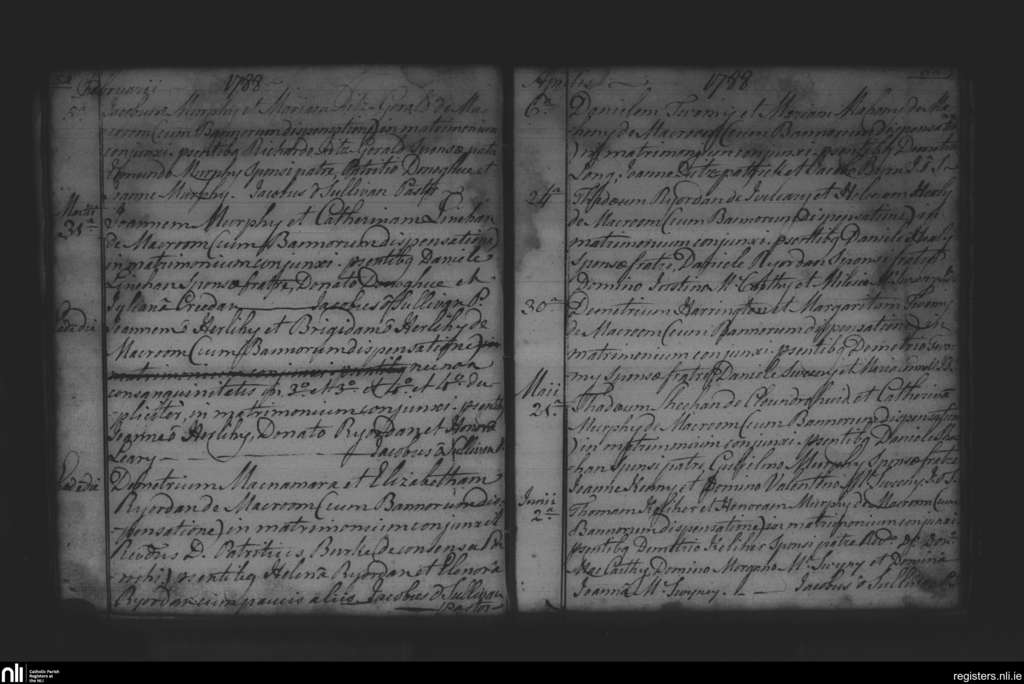 Februarii 1788
5a. Jacobum Murphy et Mariam Fitz-Gerald de Ma-
croom (cum Bannorum dispensatione) in matrimonium
conjunxi. psentibq Richardo Fitz-Gerald Sponsæ patre
Edmundo Murphy Sponsi patre, Patritio Donoghue et
Joanne Murphy. Jacobus O Sullivan Pastor
Martii 31a. Joannem Murphy et Catherinam Linehan
de Macroom (cum Bannorum dispensatione)
in matrimonium conjunxi. psentibq Daniele
Linehan Sponsæ fratre, Donato Donoghue et
Juliana Creedan Jacobus O Sullivan P.
Eade die Joannem ō Herlihy et Brigidam ō Herlihy de
Macroom (cum Bannorum dispensatione) in
matrimonium conjunxi psentibq necnon
consanguinitatis in 3o. et 3o. & 4o. et 4o. du-
pliciter, in matrimonium conjunxi. psentibq
Joanne ō Herlihy, Donato Ryordan et Honora
Leary Jacobus ō Sullivan P.
Eade die Demetrium Macnamara et Elizabetham
Ryordan de Macroom (cum Bannorum dis-
-pensatione) in matrimonium conjunxit
Revdus D. Patritius Burke de consensu Pa-
rochi) psentibq Helena Ryordan et Elenora
Ryordan cum paucis aliis Jacobus O Sullivan
Pastor
Aprilis 1788
6a. Danielem Twomy et Mariam Mahony de
Macroom (cum Bannorum dispensatione
) in matrimonium conjunxi. psentibq Demetrio
Long, Joanne Fitzpatrick et Byrn J. ō S.
24a. Thadæum Ryordan de et Helenam Healy
de Macroom (cum Bannorum dispensatione) in
matrimonium conjunxi. psentibq Daniele Healy
Sponsæ fratre, Daniele Ryordan Sponsi fratre
Domino Mc Carthy et
30a. Demetrium Harrington et Margaritam Twomy
de Macroom (cum Bannorum dispensatione) in
matrimonium conjunxi. psentibq Demetrio Two-
my Sponsæ fratre, Daniele Sweeny et Maria
Maii 21a. Thadæum Sheehan de Cloundrohid et Catherina
Murphy de Macroom (cum Bannorum dispensatione
) in matrimonium conjunxi. psentibq Daniele Shee
han Sponsi patre, Gulielmo Murphy Sponsæ fratre
Joanne Kenny et Domino Valentino Mc Sweeny J. ō S.
Junii 2a. Thomam Keliher et Honoram Murphy de Macroom (cum
Bannorum dispensatione) in matrimonium conjunxi
psentibq Demetrio Keliher Sponsi patre
Mac Carthy, Domino Morgano Mc Swyny et Domina
Joanna Mc Swyney. Jacobus ō Sullivan P.
nli Catholic Parish
Registers at
the NLI
registers.nli.ie